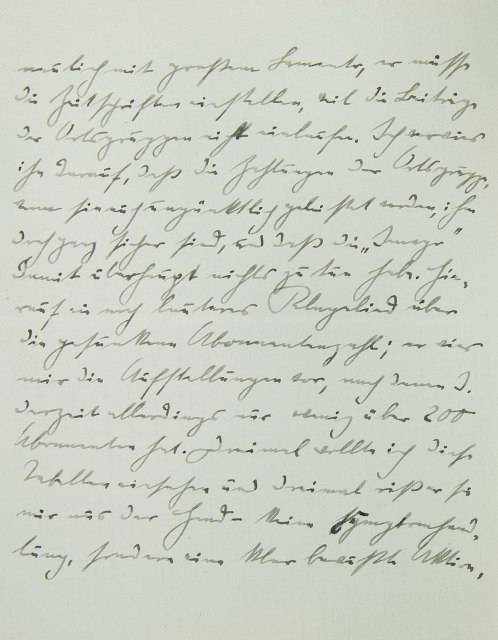 neulich mit großem Lamento, er müsse
die Zeitschriften einstellen, weil die Beiträge
der Ortsgruppen nicht einlaufen. Ich verwies
ihn darauf, daß die Zahlungen der Ortsgruppe,
wenn sie auch unpünktlich geleistet werden, ihm
doch ganz sicher sind, und daß die „Imago"
damit überhaupt nichts zu tun habe. Hie-
rauf ein noch lauteres Klagelied über
die gesunkene Abonnentenzahl; er wies
mir die Aufstellungen vor, nach denen I.
derzeit allerdings nur wenig über 200
Abonnenten hat. Dreimal wollte ich diese
Tabellen einsehen und dreimal riß er sie
mir aus der Hand – keine Symptomhand-
lung, sondern eine klar bewußte Aktion,